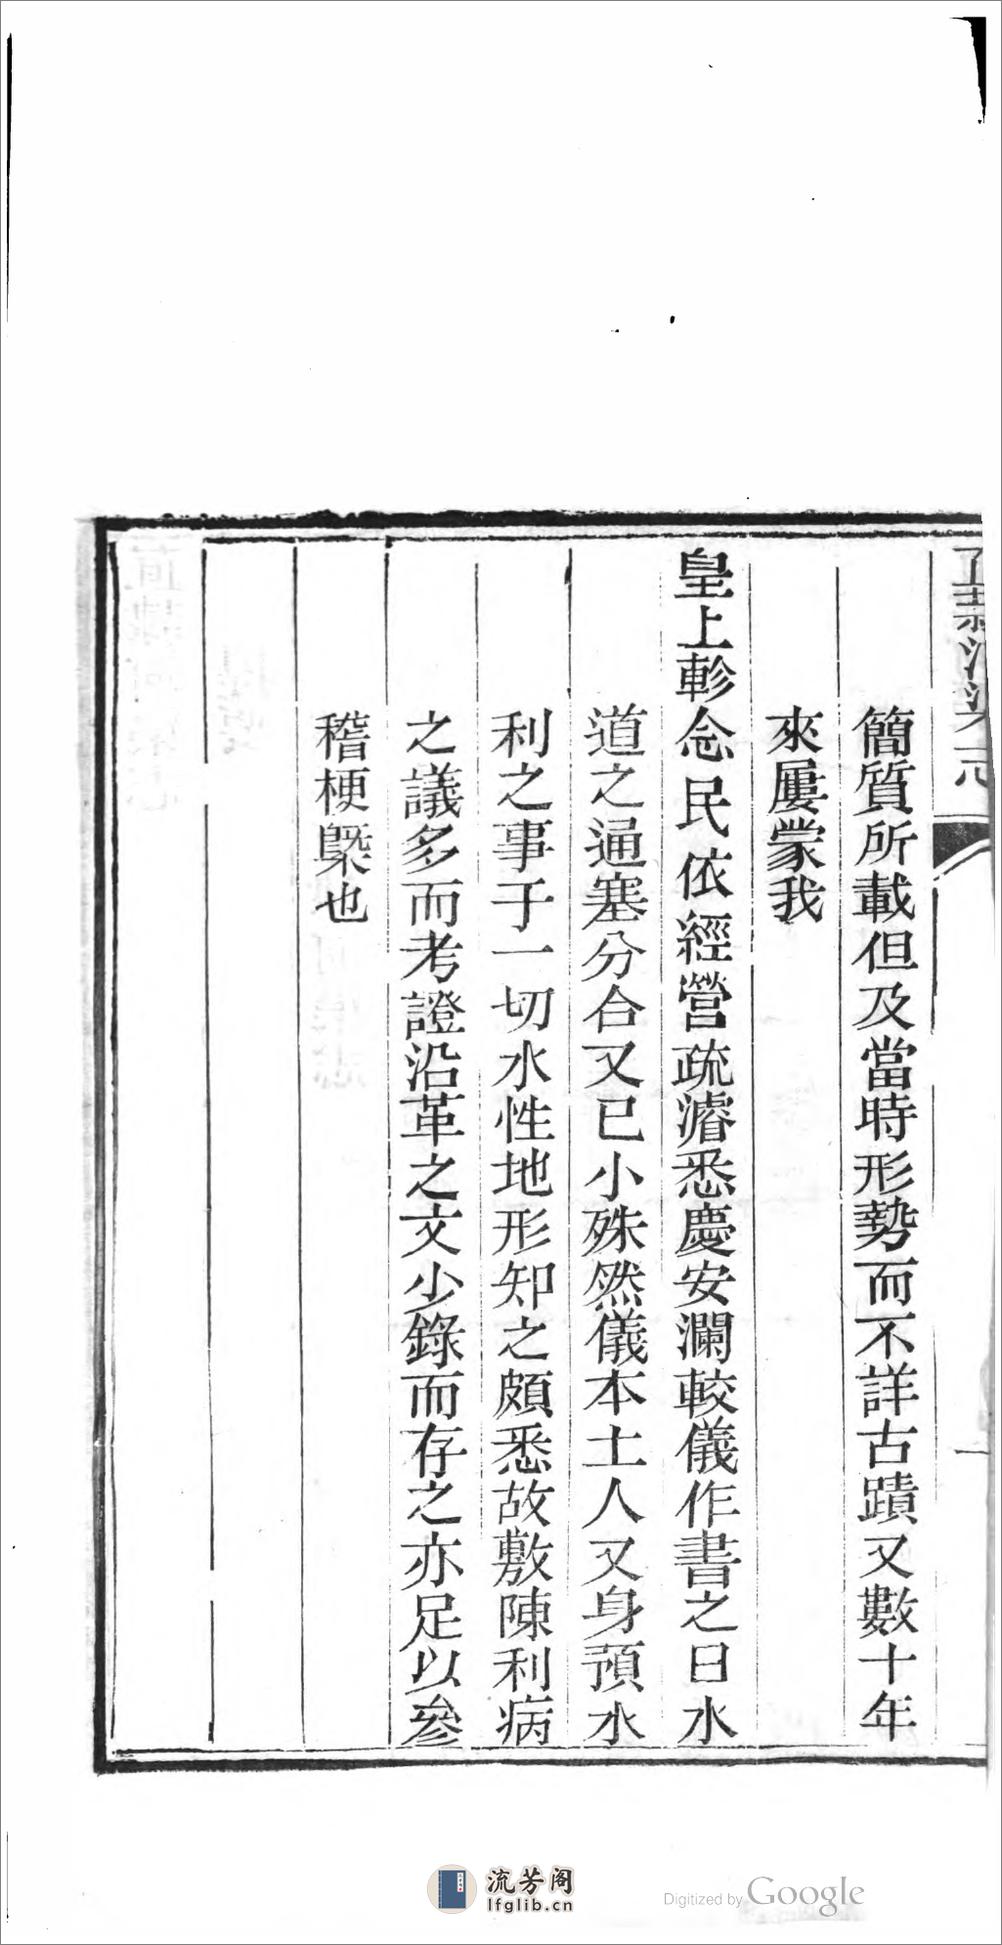 簡質所載但及當時形勢而不詳古蹟又數十年
來屢蒙我
皇上軫念民依經營疏濬悉慶安瀾較儀作書之日水
道之通塞分合又已小殊然儀本土人又身預水
利之事于一切水性地形知之頗悉故敷陳利病
之議多而考證沿革之文少錄而存之亦足以參
稽梗槩也
流芳阁
lfglib.cn
Digitized by Google